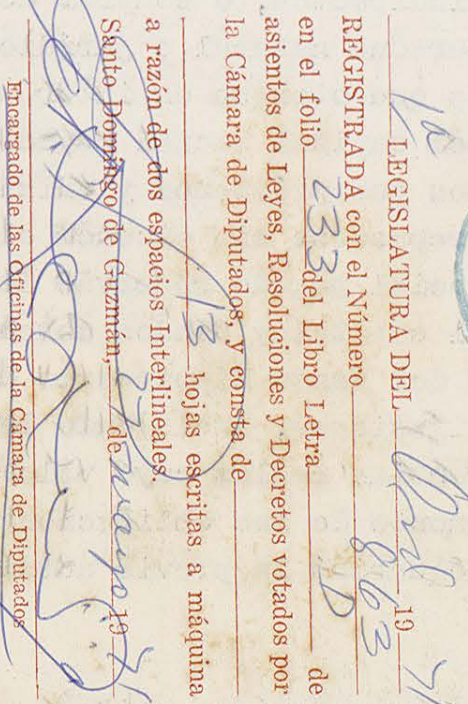 1a LEGISLATURA DEL Ord 19 71
REGISTRADA con el Número 863
en el folio 233 del Libro Letra D de
asientos de Leyes, Resoluciones y Decretos votados por
la Cámara de Diputados, y consta de
13 hojas escritas a máquina
a razón de dos espacios Interlineales.
Santo Domingo de Guzmán, 27 de mayo 19 71
Encargado de las Oficinas de la Cámara de Diputados